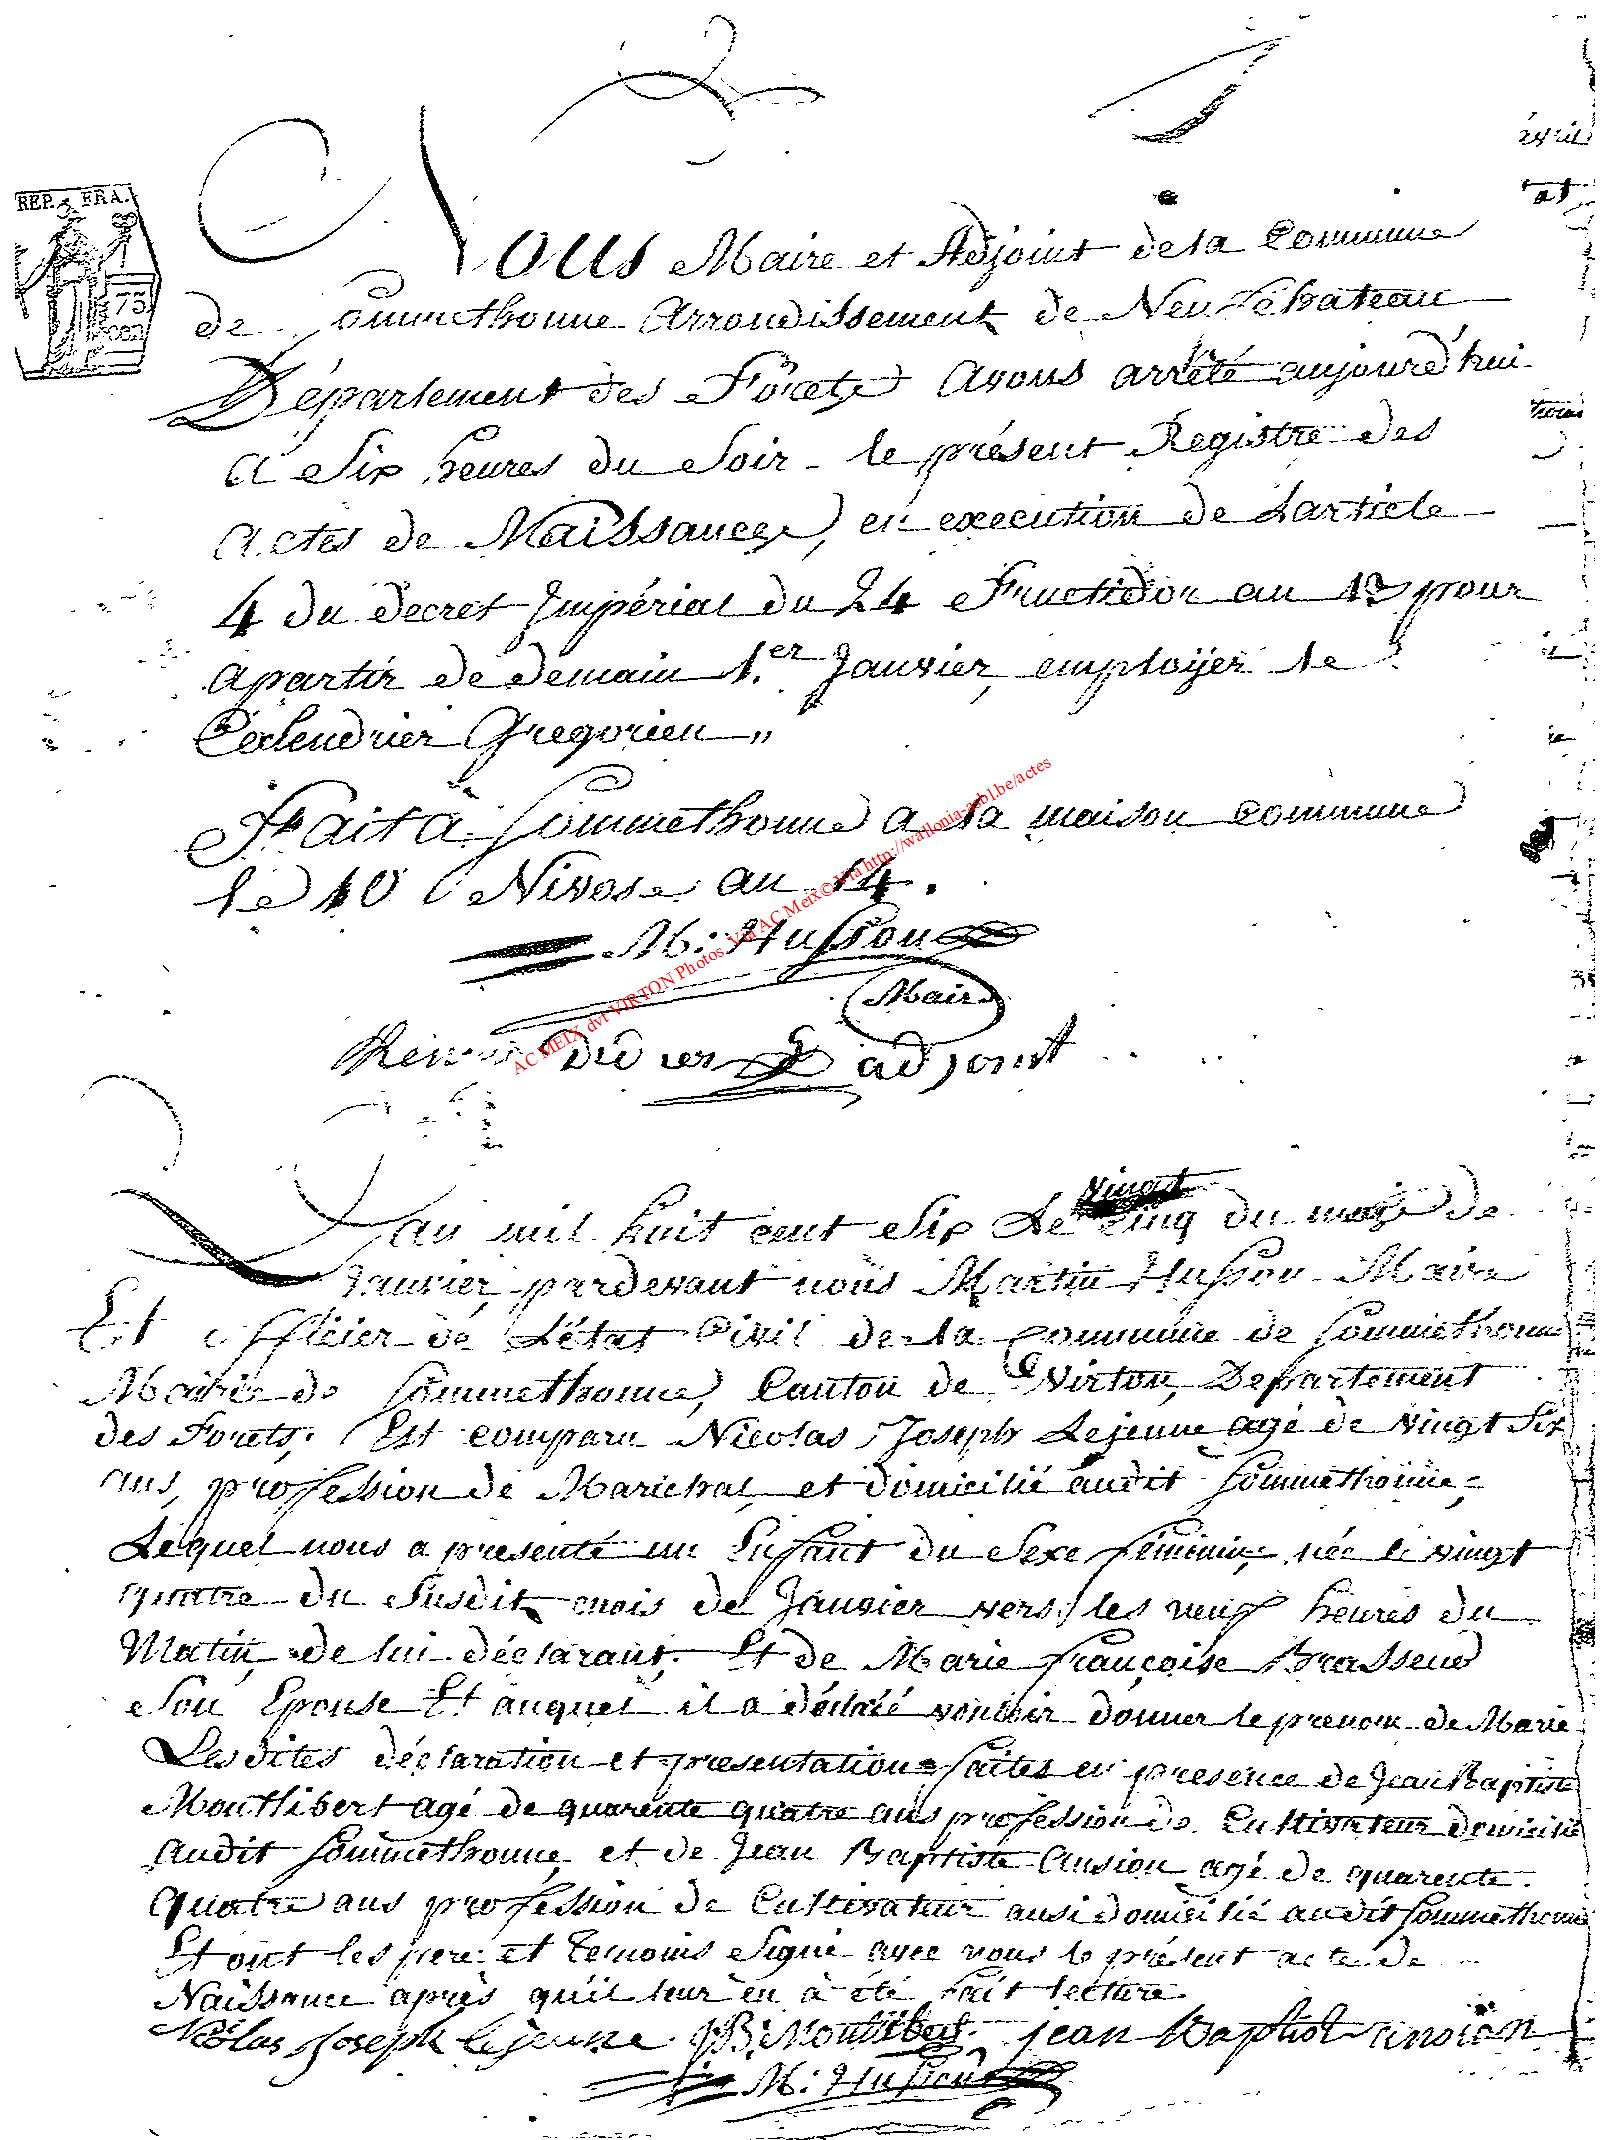 REP. FRA.
75
cen
Nous Maire et Adjoint de la Commune
de Sommethonne Arrondissement de Neufchateau
Département des Forets avons arrêté aujourd'hui
a Six heures du Soir le présent Registre des
actes de Naissances, en execution de Larticle
4 du decret Impérial du 24 Fructidor an 13 pour
apartir de demain 1.er Janvier, employer le
Calendrier Gregorien „
Fait à Sommethonne a la maison Commune
le 10 Nivose an 14.
M: Husson
Maire
Didier adjoint
AC MEIX dvt VIRTON Photos Via AC Meix© Via http://wallonia-asbl.be/actes
Lan mil huit cent Six Le vingt Cinq du mois de
Janvier, pardevant nous Martin Husson Maire
Et officier de Létat Civil de la Commune de Sommethonne
Mairie de Sommethonne, Canton de Virton, Departement
des Forets, Est comparu Nicolas Joseph Lejeune agé de vingt Six
ans, profession de Marichal, et domicilié audit Sommethonne,
Lequel nous a presenté un Enfant du Sexe féminin, née le vingt
quatre du Susdit mois de Janvier vers les neuf heures du
Matin, de lui déclarant, Et de Marie françoise Brasseur
Son Epouse Et auquel il a déclaré vouloir donner le prenom de Marie
Les dites déclaration et presentation faites en presence de Jean Baptiste
Montlibert agé de quarente quatre ans profession de Cultivateur domicilié
audit Sommethonne, et de Jean Baptiste Ansion agé de quarente
quatre ans profession de Cultivateur ausi domicilié audit Sommethonne
Et ont les pere et temoins Signé avec nous le présent acte de
Naissance après qu'il leur en à été fait lecture
Nicolas Joseph Lejeune JB: Montlibert jean Baptist ansion
M: Husson